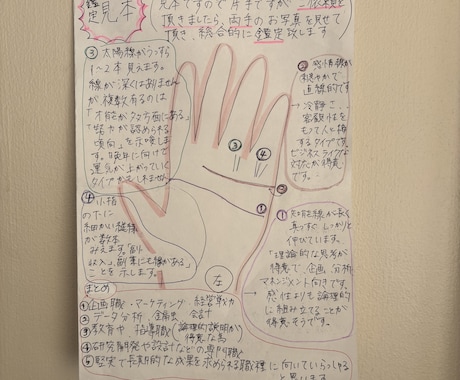 鑑定見本
見本ですので片手ですが ご依頼を
頂きましたら、両手のお写真を見せて
頂き、総合的に鑑定致します
③ 太陽線がうっすら
1〜2本見えます。
線が深くはありません
が複数有るのは
「才能が多方面にある」
「努力が認められる
傾向」を示唆しま
す。晩年に向けて
運気が上がっていく
タイプかもしれません
② 感情線が
穏やかで
直線的です
→ 冷静さ、
客観性を
もって人と接
するタイプで
ビジネスライクな
対応が得意
です。
③ ④
②
①
④ 小指
の下に
細かい縦線
が数本
みえます。「副
収入」、「副業にも縁がある」
ことを示します。
左
① 知能線が長く
真っすぐ しっかりと
伸びています。
「理論的な思考が
得意で、企画、分析
マネジメント向きです。
感性よりも論理的
に組み立てることが
得意そうです。
まとめ
① 企画職・マーケティング・経営戦力
② データ分析、金融、会計
③ 教育や、指導職(論理的説明が得意な為)
④ 研究開発や設計などの専門職
⑤ 堅実で長期的な成果を求められる職種に向いていらっしゃる
と思います